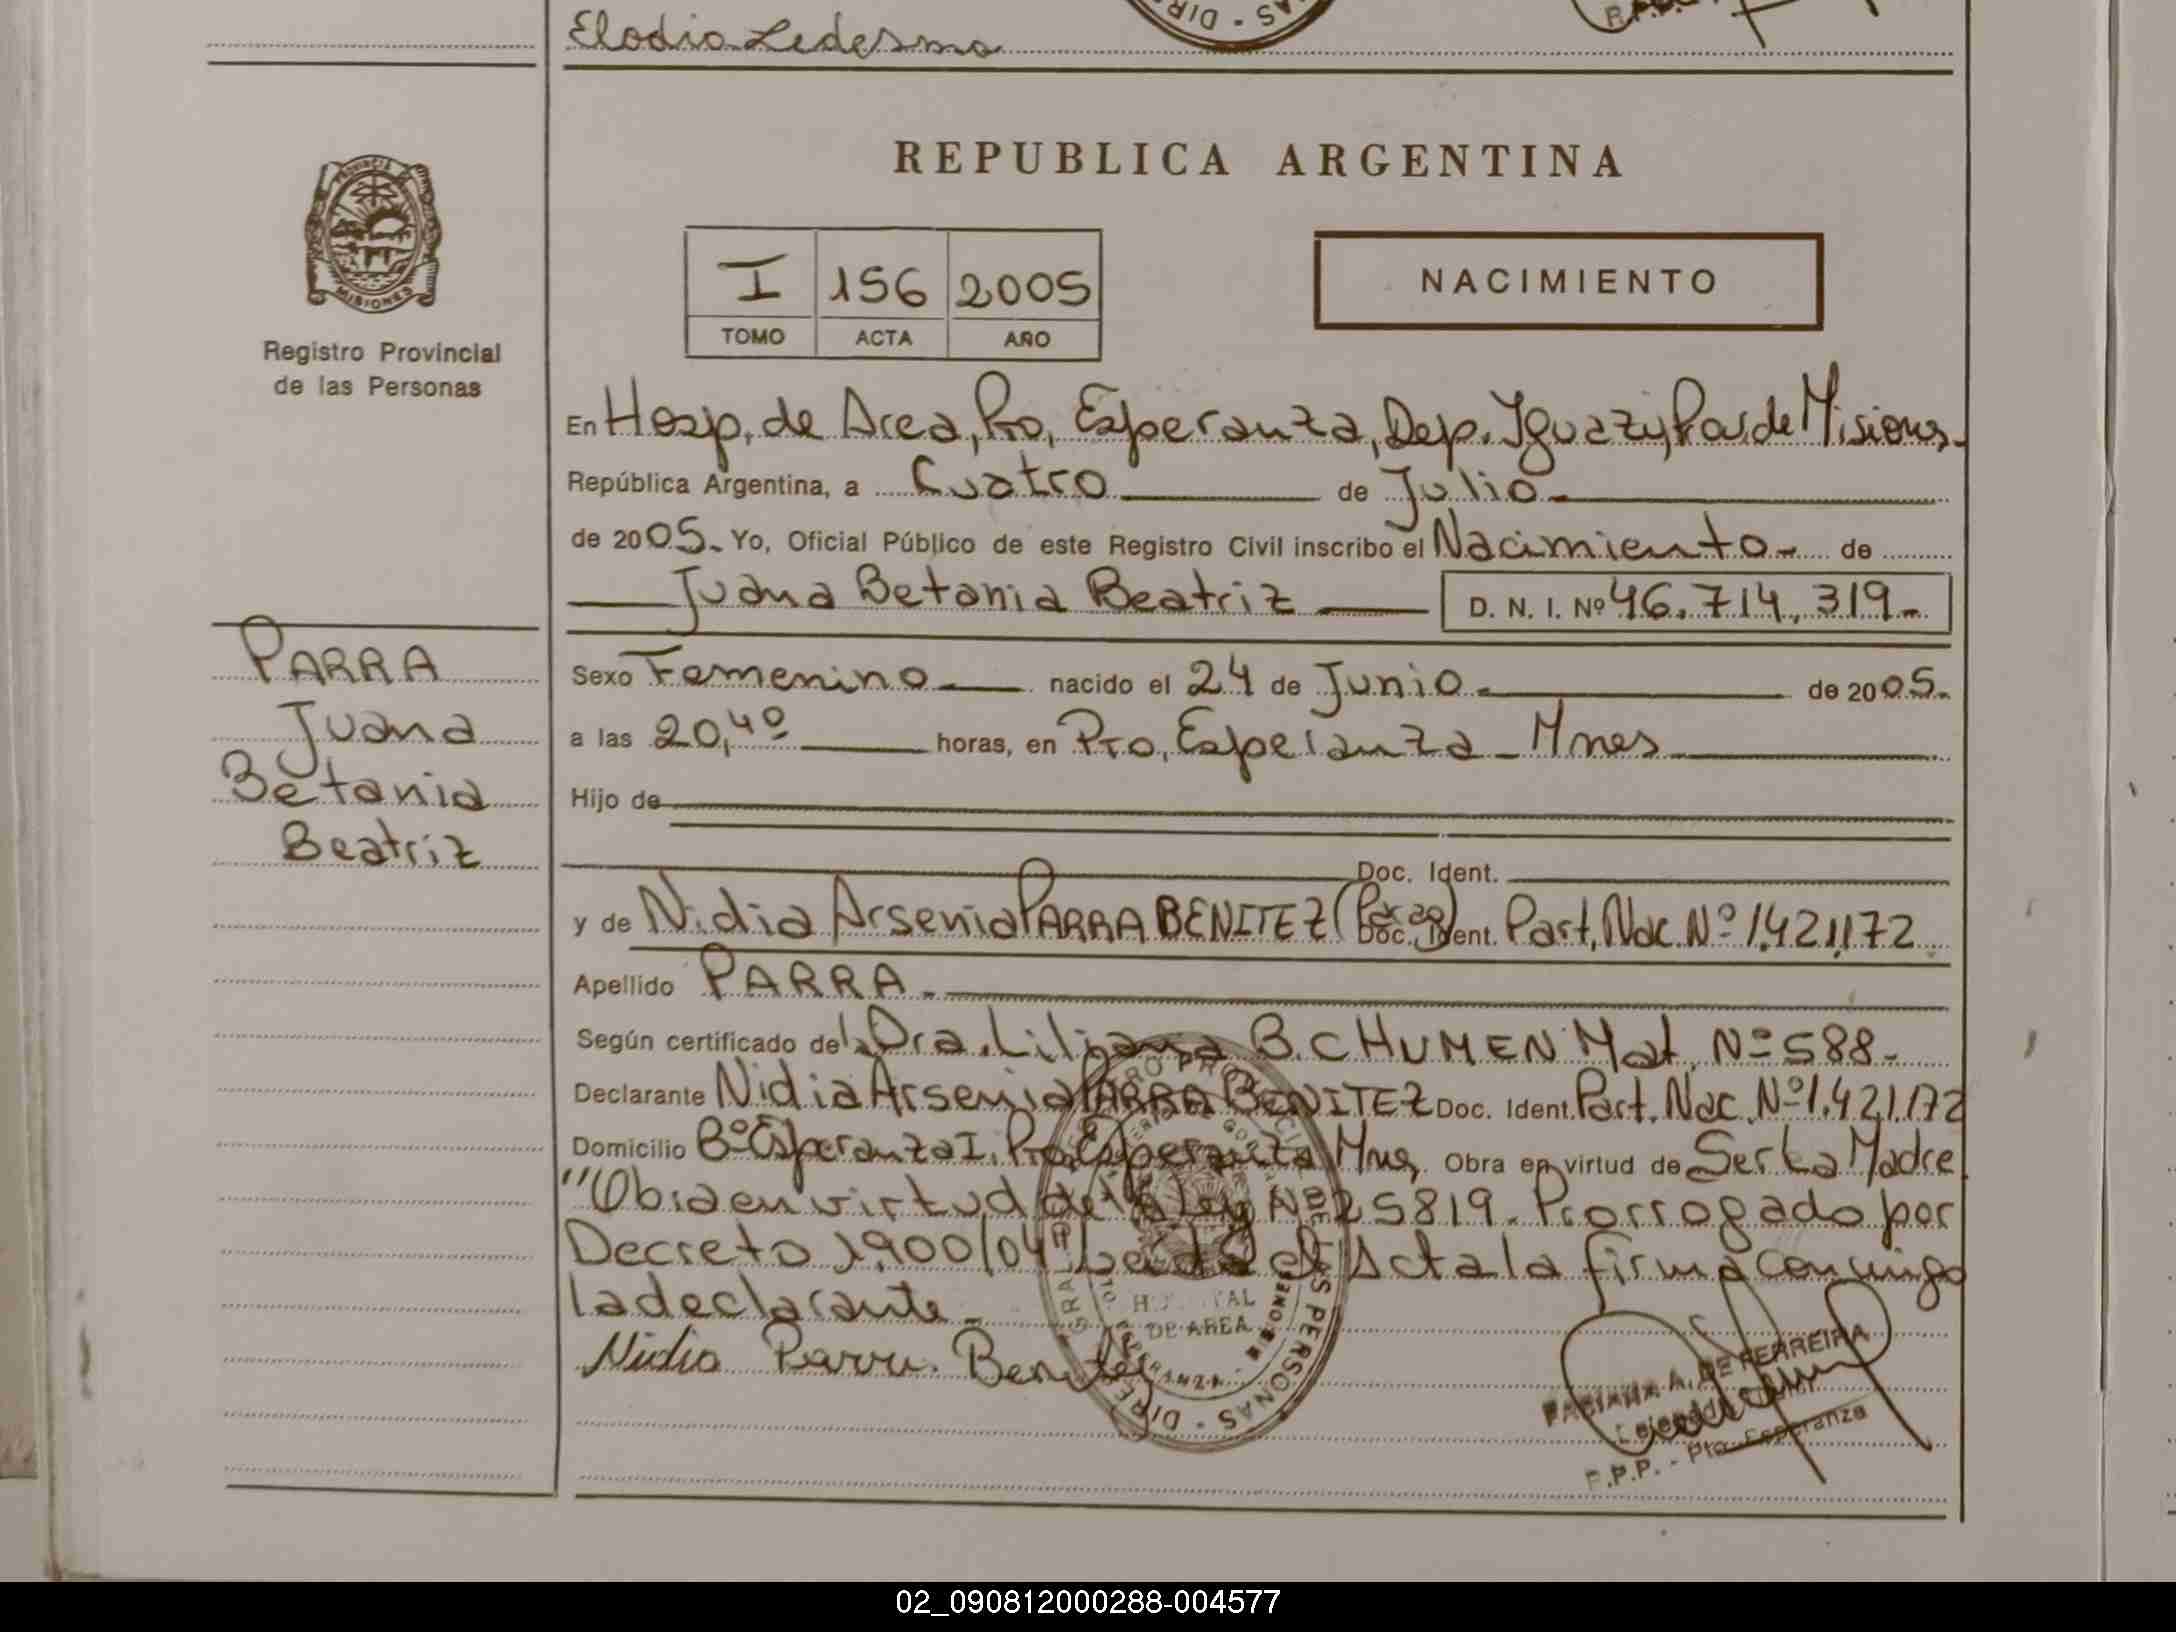 Elodia Ledesma
REPUBLICA ARGENTINA
PROVINCIA
MISIONES
Registro Provincial
de las Personas
I 156 2005
TOMO ACTA AÑO
NACIMIENTO
En Hosp. de Area, Pto, Esperanza, Dep. Iguazu, de Misiones.
República Argentina, a Cuatro de Julio
de 2005. Yo, Oficial Público de este Registro Civil inscribo el Nacimiento de
Juana Betania Beatriz D. N. I. Nº 46.714.319.
PARRA
Juana
Betania
Beatriz
Sexo Femenino nacido el 24 de Junio de 2005.
a las 20,40 horas, en Pto, Esperanza - Mnes
Hijo de
Doc. Ident.
y de Nidia Arsenia PARRA BENITEZ (Parag) Doc. Ident. Part, Nac. Nº 1.421.172
Apellido PARRA
Según certificado de la Dra. Liliana B. CHUMEN Mat. Nº 588.
Declarante Nidia Arsenia PARRA BENITEZ Doc. Ident. Part. Nac. Nº 1.421.172
Domicilio Bº Esperanza I. Pto. Esperanza Mnes, Obra en virtud de Ser La Madre
"Obra en virtud de la Ley Nº 25819. Prorrogado por
Decreto 1.900/04" Leida el Acta la firma conmigo
la declarante.
Nidia Parra Benitez
HOSPITAL
DE AREA
FABIANA A. DE FERREIRA
R.P.P. - Pto. Esperanza
02_090812000288-004577